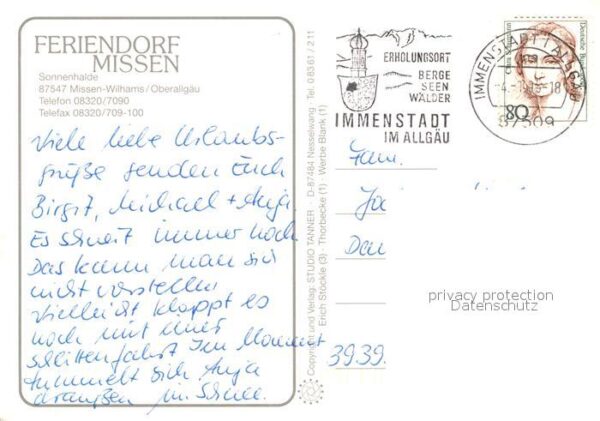 FERIENDORF
MISSEN
Sonnenhalde
87547 Missen-Wilhams/Oberallgäu
Telefon 08320/7090
Telefax 08320/709-100
Viele liebe Urlaubs-
grüße senden Euch
Birgit, Michael + Anja
Es schneit immer noch
Das kann man sich
nicht vorstellen
vielleicht klappt es
noch mit einer
schlittenfahrt Im Moment
tummelt sich Anja
draußen im Schnee.
Copyright und Verlag: STUDIO TANNER · D-87484 Nesselwang · Tel. 0 83 61 / 2 11
Erich Stöckle (3) · Thorbecke (1) · Werbe Blank (1)
ERHOLUNGSORT
BERGE
SEEN
WÄLDER
IMMENSTADT
IM ALLGÄU
IMMENSTADT I ALLGÄU
87509
Deutsche Bundespost
80
Fam.
39.39.
privacy protection
Datenschutz